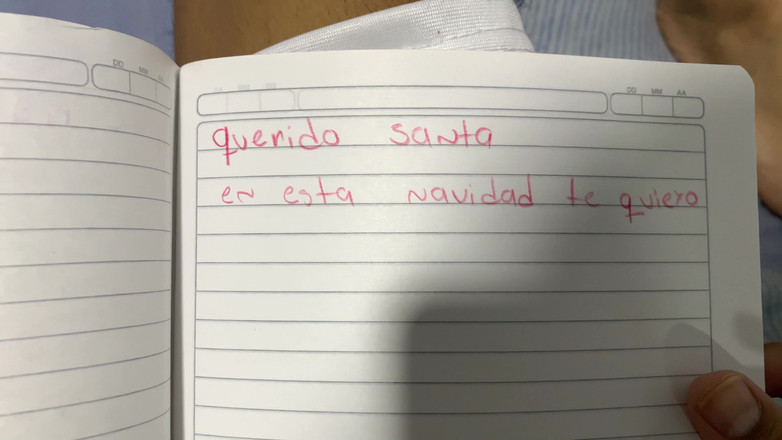 DD MM AA
DD MM AA
querido santa
en esta navidad te quiero